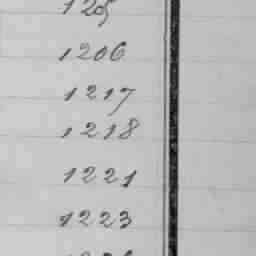 1205
1206
1217
1218
1221
1223